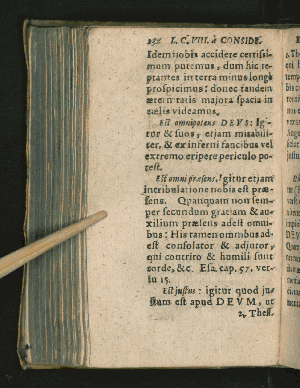 L. C. VIII. à CONSIDE.
Idem nobis accidere certissi-
mum putemus, dum hic re-
ptantes in terra minus longè
prospicimus: donec tandem
æternitatis majora spacia in
cœlis videamus.
Est omnipotens DEVS: Igi-
tur & suos, etjam mirabili-
ter, & ex inferni faucibus vel
extremo eripere periculo po-
test.
Est omni præsens. Igitur etjam
in tribulatione nobis est præ-
sens. Quanquam non sem-
per secundum gratiam & au-
xilium præsens adest omni-
bus: His tamen omnibus ad-
est consolator & adjutor,
qui contrito & humili sunt
corde, &c. Esa. cap. 57, ver-
su 15.
Est justus: igitur quod ju-
stum est apud DEVM, ut
2, Thess.